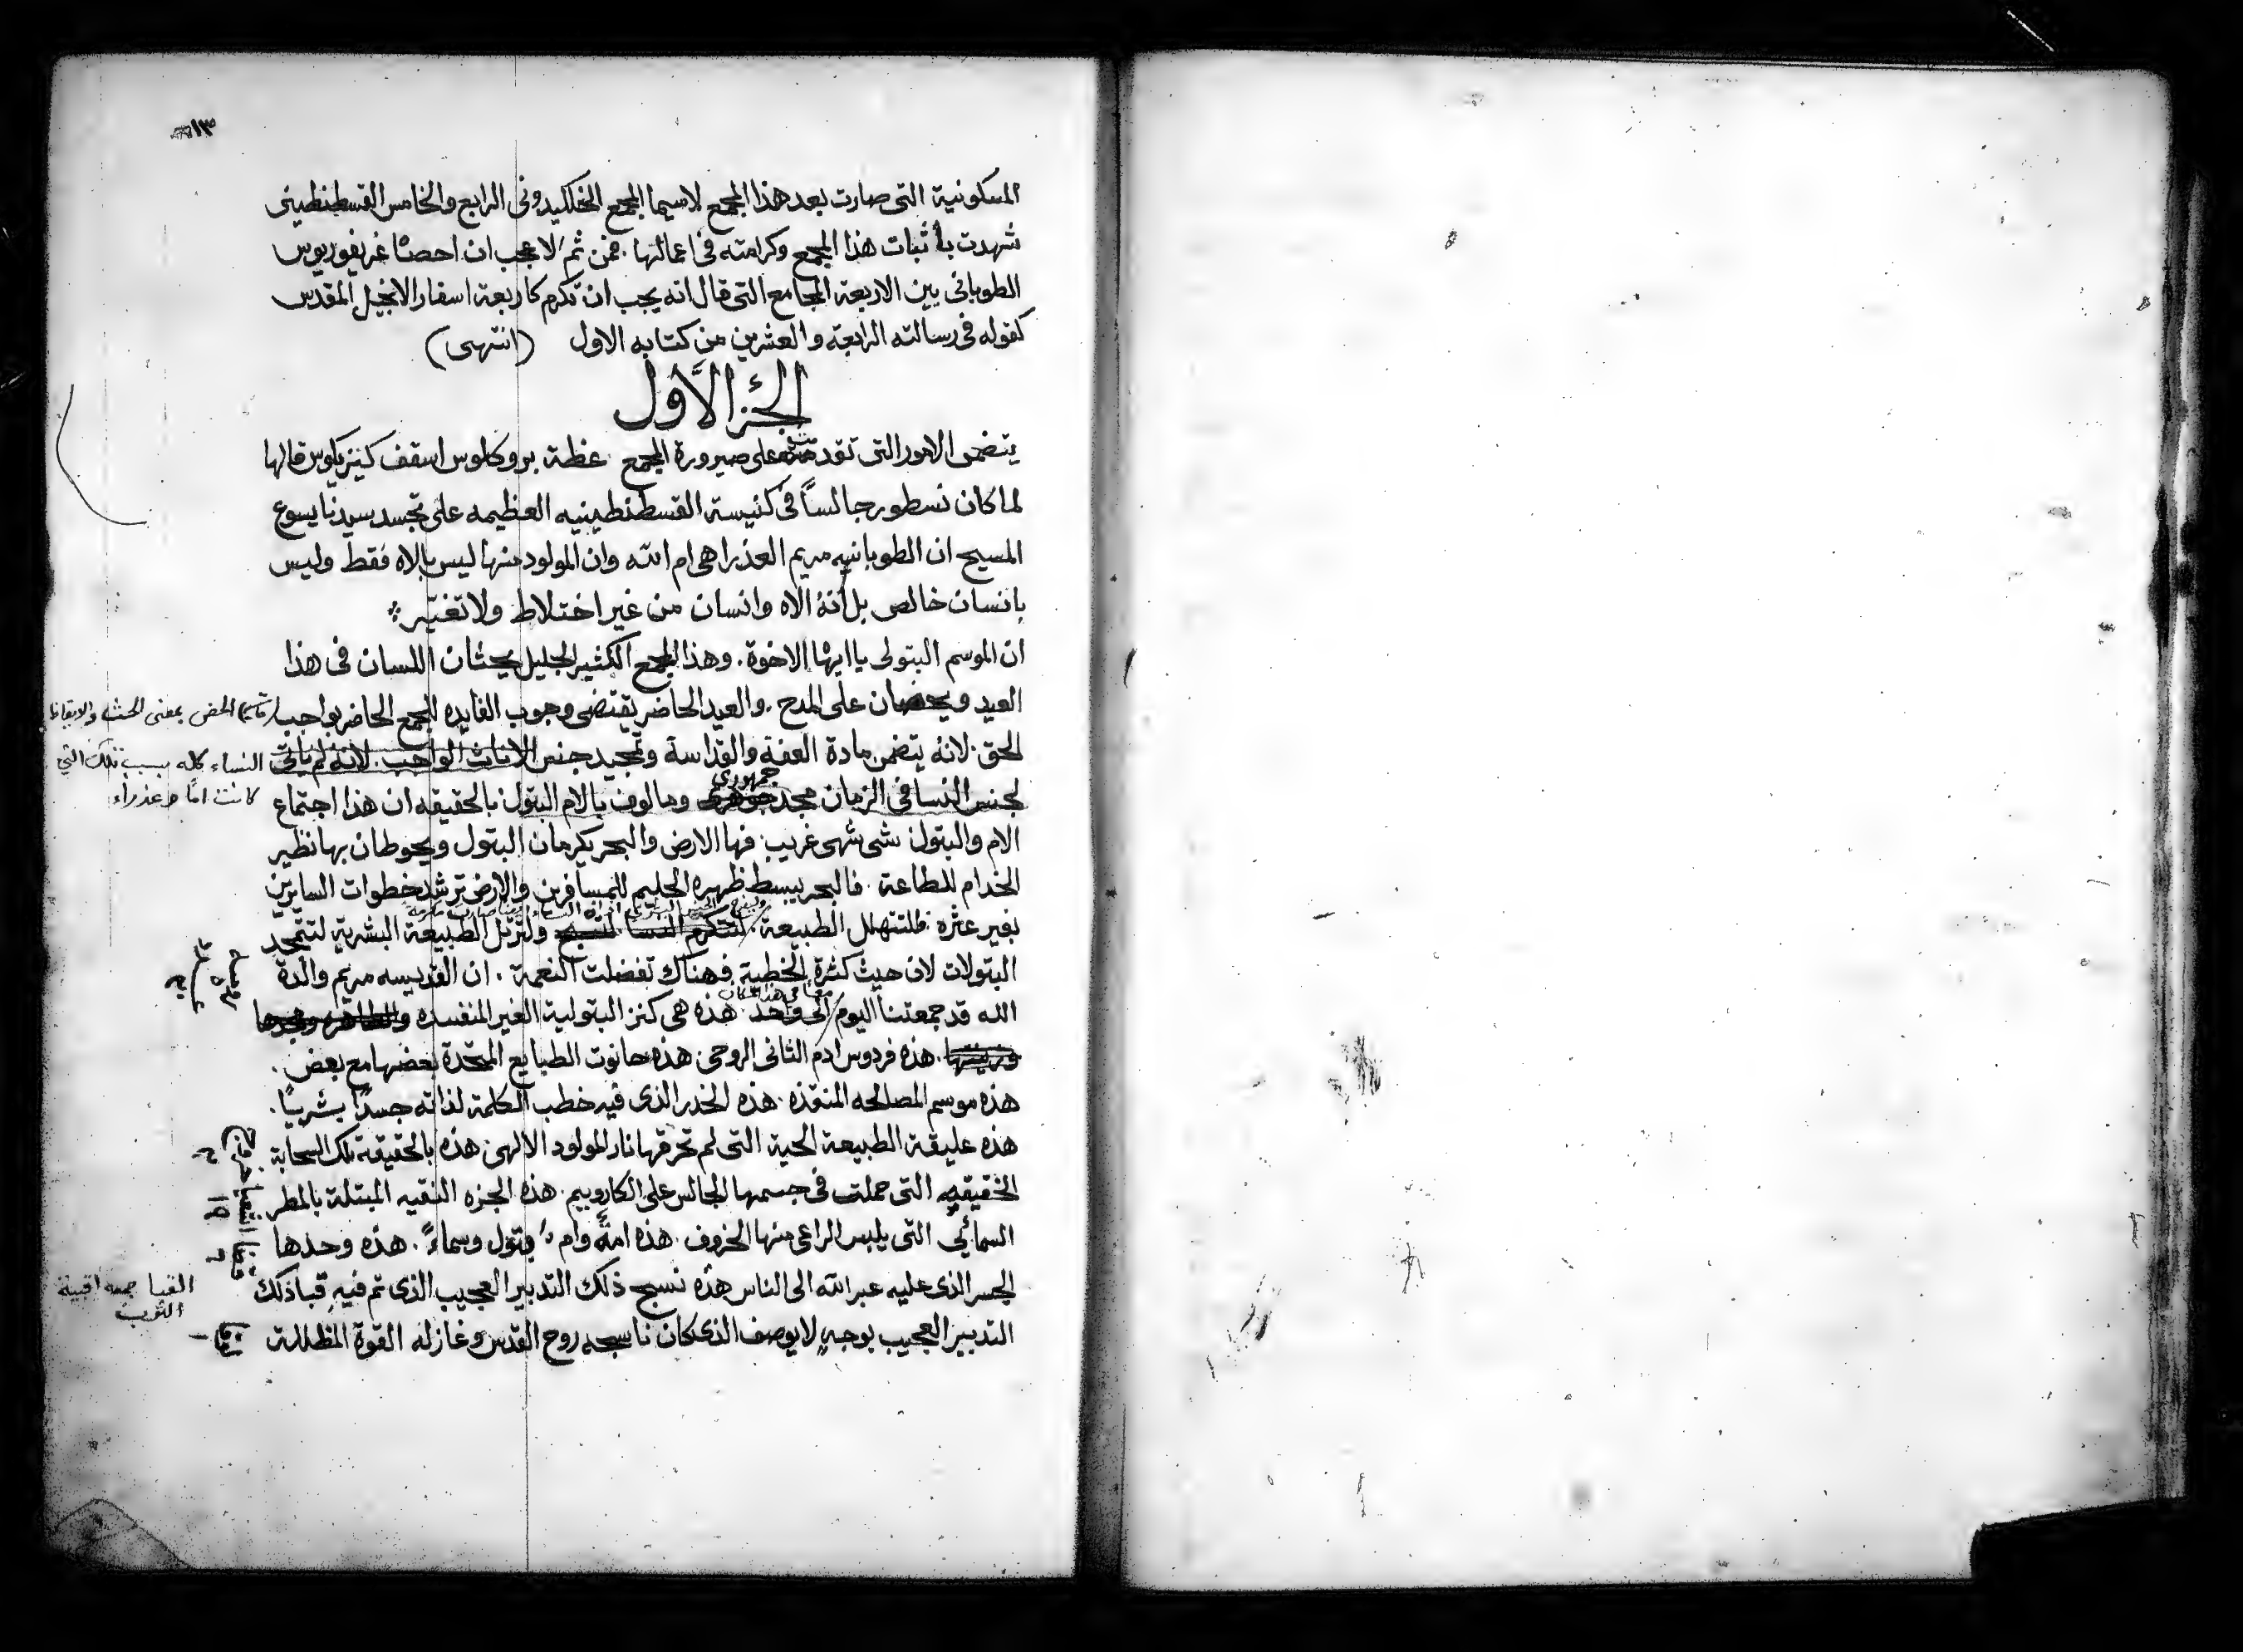 ١٣
المسكونية التى صارت بعد هذا المجمع لاسيما المجمع الخلكيدونى الرابع والخامس القسطنطينى
شهدت باثبات هذا المجمع وكرامته فى اعمالها . فمن ثم لا عجب ان احصاه غريغوريوس
الطوبانى بين الاربعة المجامع التى قال انه يجب ان تكرم كاربعة اسفار الانجيل المقدس
كقوله فى رسالته الرابعة والعشرين من كتابه الاول (انتهى)
الجزء الاول
يتضمن الامور التى تقدمت على صيرورة المجمع . عظة بروكلوس اسقف كيزيكوس قالها
لما كان نسطور جالسًا فى كنيسة القسطنطينيه العظيمه على تجسد سيدنا يسوع
المسيح ان الطوبانيه مريم العذرا هى ام الله وان المولود منها ليس بالاه فقط وليس
بانسان خالص بل أنهُ الاه وانسان من غير اختلاط ولا تغيّر
ان الموسم البتولى يا ايها الاخوة . وهذا المجمع الكثير الجليل يحثان اللسان فى هذا
العيد ويحضان على المدح . والعيد الحاضر يقتضى وجوب الفايده للجمع الحاضر بواجب
الحض بمعنى الحث والايقاظ
الحق . لانهُ يتضمن مادة العفة والقداسة وتمجيد جنس الاناث الواجب . لانهُ لم ياتى
النساء كله بسبب تلك التي
كانت امًا وعذراء
لجنس النسا فى الزمان مجد جوهرى وما لوف بالام البتول بالحقيقه ان هذا اجتماع
جمهورى
الام والبتول شى شهى غريب . فها الارض والبحر يكرمان البتول ويحوطان بها نظير
الخدام للطاعة . فالبحر يبسط ظهره الحليم للمسافرين والارض ترشد خطوات السايرين
بغير عثره . فلتتهلل الطبيعة . لتتكرم النسا لتسبح ولترتل الطبيعة البشرية لتتمجد
البتولات لان حيث كثرة الخطية فهناك تفضلت النعمة . ان القديسه مريم والدة
الله قد جمعتنا اليوم الى واحد . هذه هى كنز البتولية الغير المنفسده والطاهره ومجدها
معًا فى هذا المكان
وزينتها . هذه فردوس ادم الثانى الروحى . هذه حانوت الطبايع المتحدة بعضها مع بعض .
هذه موسم المصالحه المنقذه . هذه الخدر الذى فيه خطب الكلمة لذاته جسدًا بشريًا .
هذه عليقة الطبيعة الحية التى لم تحرقها نار المولود الالهى هذه بالحقيقة تلك السحابة
الخفيفه التى حملت فى جسمها الجالس على الكاروبيم . هذه الجزه النقيه المبتلة بالمطر
السمائي التى يلبس الراعى منها الخروف . هذه امةٌ وام وبتول وسماءً . هذه وحدها
الجسر الذى عليه عبر الله الى الناس هذه نسيج ذلك التدبير العجيب الذى تم فيه قبا ذلك
القبا جمعه اقبية
الثوب
التدبير العجيب بوجهٍ لا يوصف الذى كان ناسجه روح القدس وغازله القوة المظللة